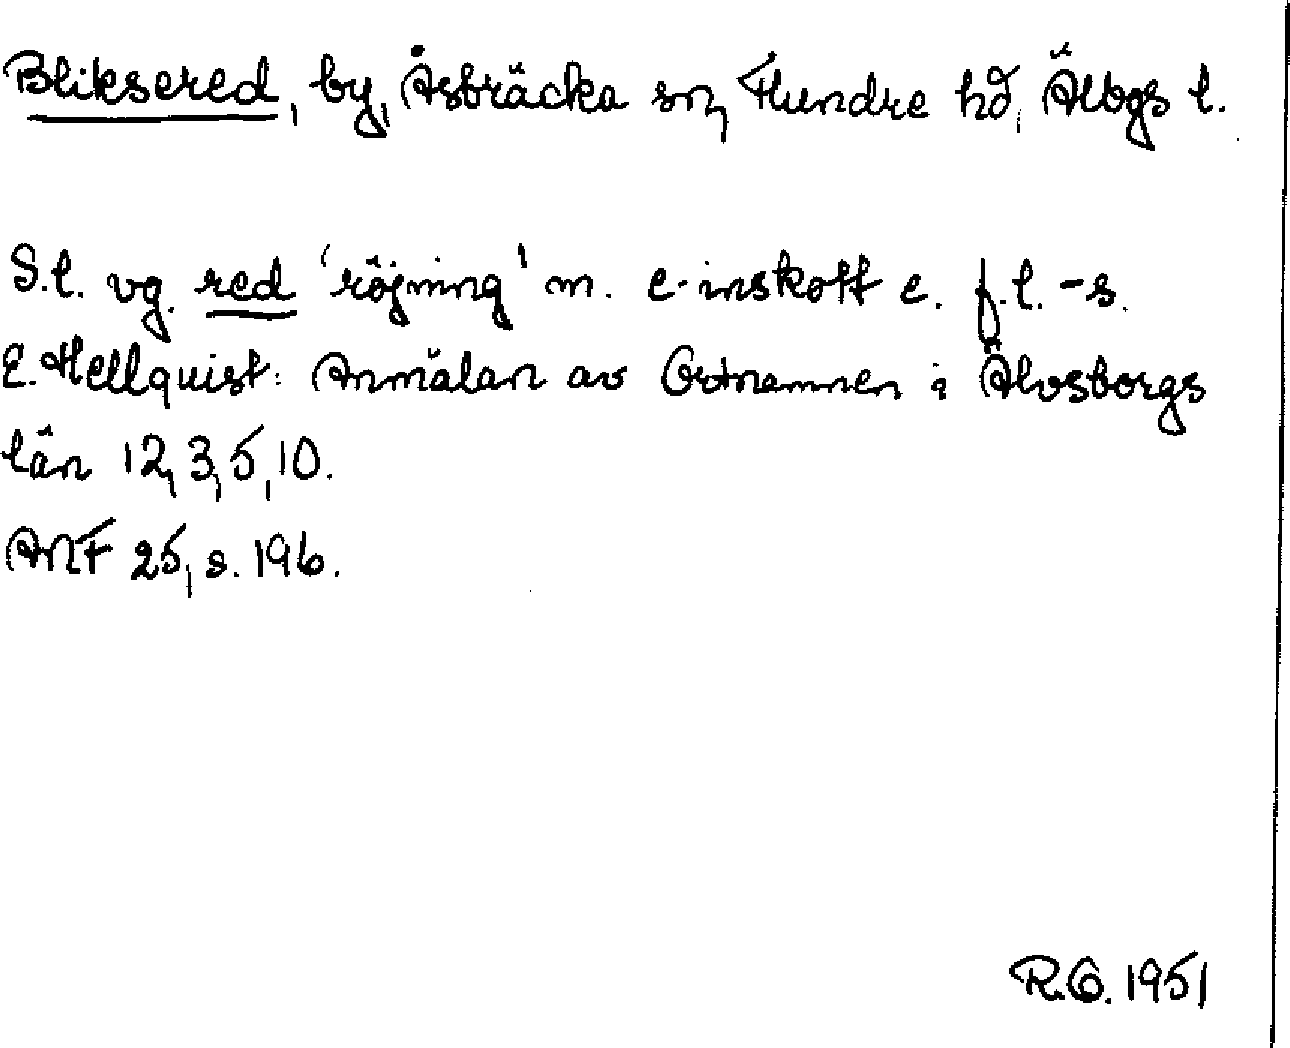 Bliksered, by, Åsbräcka sn, Flundre hd, Älvbgs l.
S.l. vg. red 'röjning' m. e-inskott e. f.l. -s.
E. Hellquist: Anmälan av Ortnamnen i Älvsborgs
län 12, 3, 5, 10.
ANF 25, s. 196.
R.O. 1951